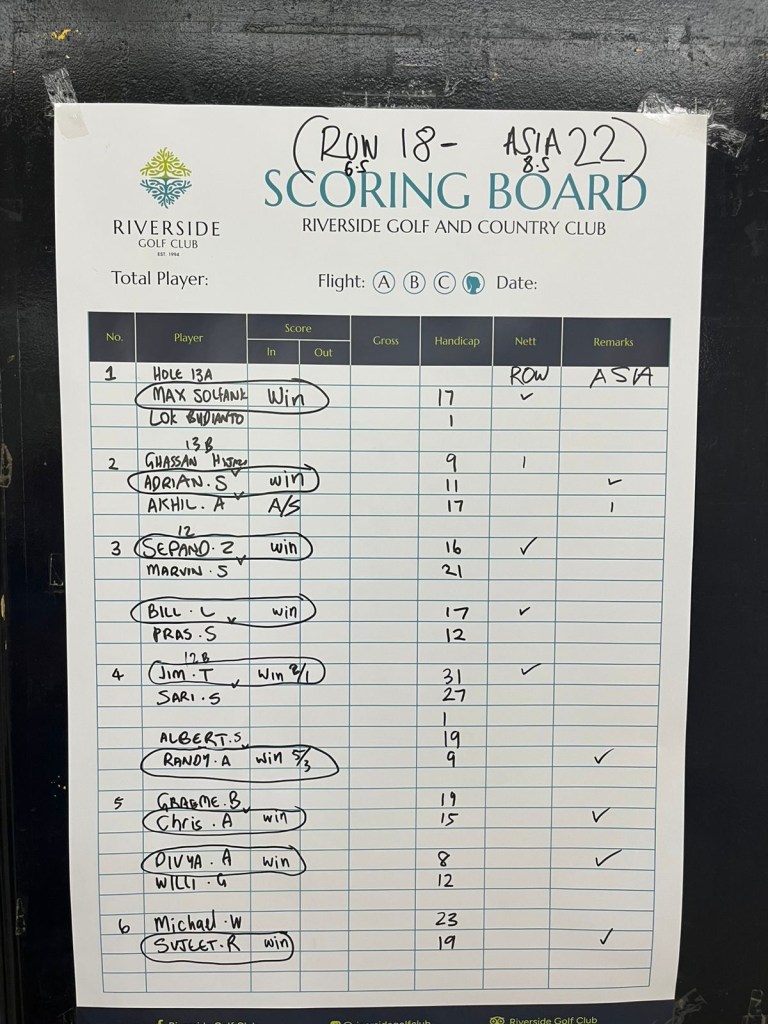 (ROW 18- ASIA 22)
6.5 8.5
SCORING BOARD
RIVERSIDE GOLF AND COUNTRY CLUB
RIVERSIDE
GOLF CLUB
EST. 1994
Total Player: Flight: A B C Date:
No. Player Score In Out Gross Handicap Nett Remarks
1 HOLE 13A ROW ASIA
MAX SOLFANK Win 17 ✓
LOK BUDIANTO 1
13B
2 GHASSAN 9 1
ADRIAN.S win 11 ✓
AKHIL.A A/S 17 1
12
3 SEPAND.Z win 16 ✓
MARVIN.S 21
BILL.L win 17 ✓
PRAS.S 12
12B
4 JIM.T Win 2/1 31 ✓
SARI.S 27
1
ALBERT.S 19
RANDY.A win 5/3 9 ✓
5 GRAEME.B 19
Chris.A win 15 ✓
DIVYA.A win 8 ✓
WILLI.G 12
6 Michael.W 23
SUJEET.R win 19 ✓
Riverside Golf Club @riversidegolfclub Riverside Golf Club